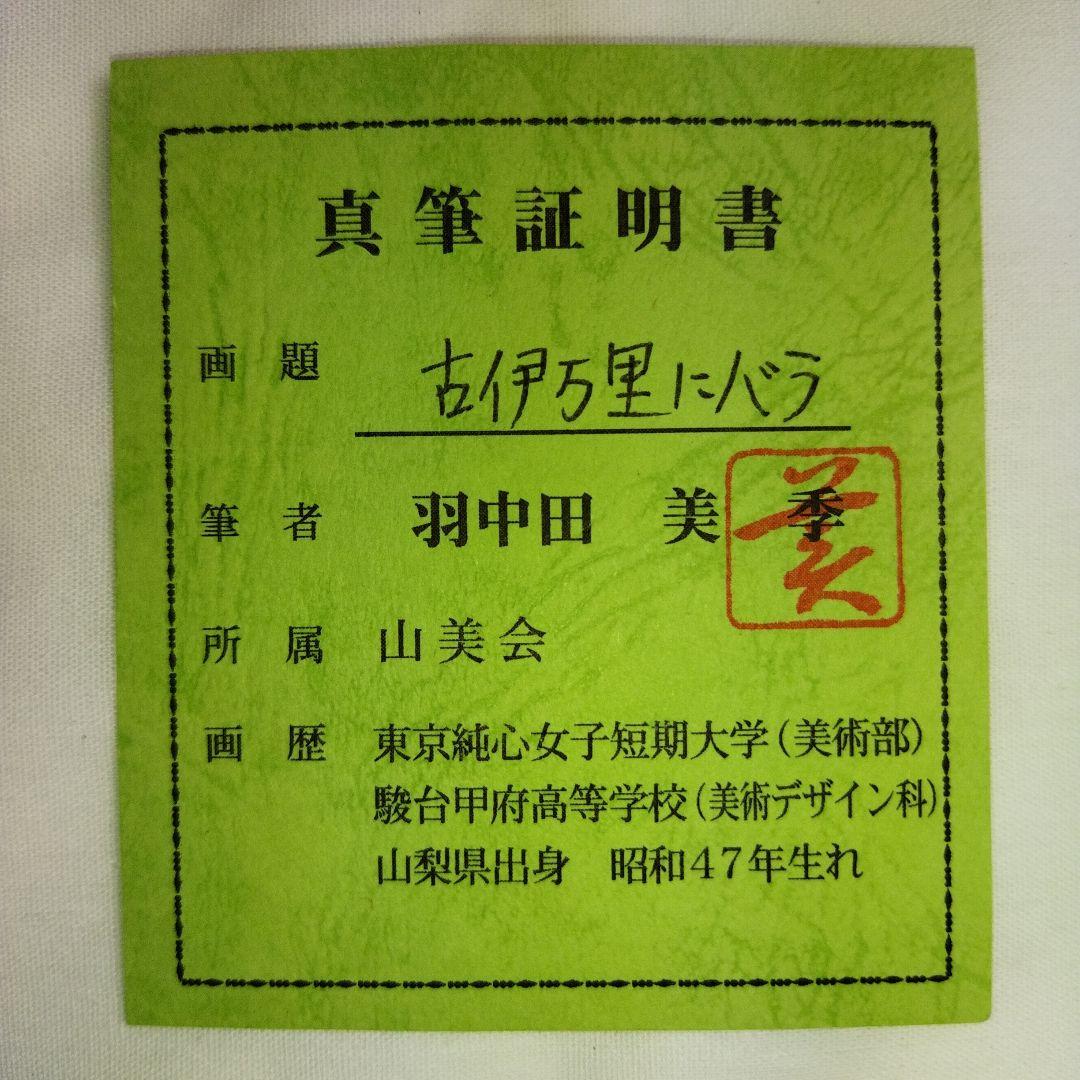 真筆証明書
画題 古伊万里にバラ
筆者 羽中田 美季
美
所属 山美会
画歴 東京純心女子短期大学(美術部)
駿台甲府高等学校(美術デザイン科)
山梨県出身 昭和47年生れ